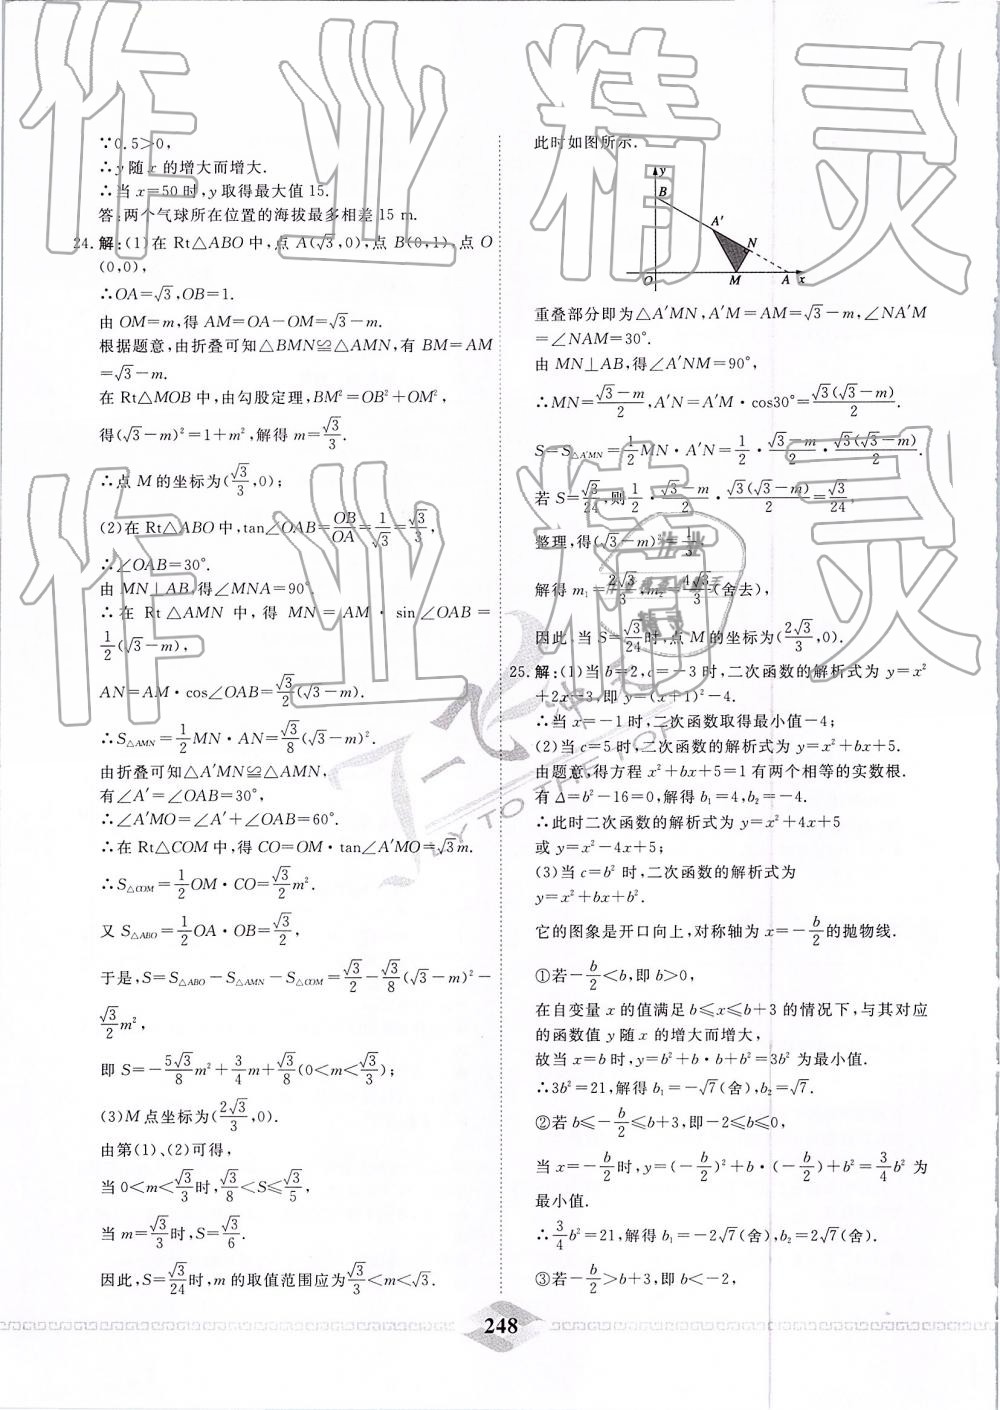 ∵0.5＞0，
∴y 随 x 的增大而增大.
∴当 x＝50 时，y 取得最大值 15.
答：两个气球所在位置的海拔最多相差 15 m.
24. 解：(1)在 Rt△ABO 中，点 A(√3，0)，点 B(0，1)，点 O
(0，0)，
∴OA＝√3，OB＝1.
由 OM＝m，得 AM＝OA－OM＝√3－m.
根据题意，由折叠可知△BMN≌△AMN，有 BM＝AM
＝√3－m.
在 Rt△MOB 中，由勾股定理，BM²＝OB²＋OM²，
得(√3－m)²＝1＋m²，解得 m＝√3/3.
∴点 M 的坐标为(√3/3，0)；
(2)在 Rt△ABO 中，tan∠OAB＝OB/OA＝1/√3＝√3/3，
∴∠OAB＝30°.
由 MN⊥AB，得∠MNA＝90°.
∴在 Rt△AMN 中，得 MN＝AM·sin∠OAB＝
1/2(√3－m)，
AN＝AM·cos∠OAB＝√3/2(√3－m).
∴S△AMN＝1/2MN·AN＝√3/8(√3－m)².
由折叠可知△A′MN≌△AMN，
有∠A′＝∠OAB＝30°，
∴∠A′MO＝∠A′＋∠OAB＝60°.
∴在 Rt△COM 中，得 CO＝OM·tan∠A′MO＝√3m.
∴S△COM＝1/2OM·CO＝√3/2m².
又 S△ABO＝1/2OA·OB＝√3/2，
于是，S＝S△ABO－S△AMN－S△COM＝√3/2－√3/8(√3－m)²－
√3/2m²，
即 S＝－5√3/8m²＋3/4m＋√3/8(0＜m＜√3/3)；
(3)M 点坐标为(2√3/3，0).
由第(1)、(2)可得，
当 0＜m＜√3/3时，√3/8＜S≤√3/5，
当 m＝√3/3时，S＝√3/6.
因此，S＝√3/24时，m 的取值范围应为√3/3＜m＜√3.
此时如图所示.
y
B
A′
N
O
M
A
x
重叠部分即为△A′MN，A′M＝AM＝√3－m，∠NA′M
＝∠NAM＝30°.
由 MN⊥AB，得∠A′NM＝90°，
∴MN＝(√3－m)/2，A′N＝A′M·cos30°＝√3(√3－m)/2.
S＝S△A′MN＝1/2MN·A′N＝1/2·(√3－m)/2·√3(√3－m)/2.
若 S＝√3/24，则1/2·(√3－m)/2·√3(√3－m)/2＝√3/24，
整理，得(√3－m)²＝1/3，
解得 m₁＝2√3/3，m₂＝4√3/3(舍去)，
因此，当 S＝√3/24时，点 M 的坐标为(2√3/3，0).
25. 解：(1)当 b＝2，c＝－3 时，二次函数的解析式为 y＝x²
＋2x－3，即 y＝(x＋1)²－4.
∴当 x＝－1 时，二次函数取得最小值－4；
(2)当 c＝5 时，二次函数的解析式为 y＝x²＋bx＋5.
由题意，得方程 x²＋bx＋5＝1 有两个相等的实数根.
有 Δ＝b²－16＝0，解得 b₁＝4，b₂＝－4.
∴此时二次函数的解析式为 y＝x²＋4x＋5
或 y＝x²－4x＋5；
(3)当 c＝b² 时，二次函数的解析式为
y＝x²＋bx＋b².
它的图象是开口向上，对称轴为 x＝－b/2的抛物线.
①若－b/2＜b，即 b＞0，
在自变量 x 的值满足 b≤x≤b＋3 的情况下，与其对应
的函数值 y 随 x 的增大而增大，
故当 x＝b 时，y＝b²＋b·b＋b²＝3b² 为最小值.
∴3b²＝21，解得 b₁＝－√7(舍)，b₂＝√7.
②若 b≤－b/2≤b＋3，即－2≤b≤0，
当 x＝－b/2时，y＝(－b/2)²＋b·(－b/2)＋b²＝3/4b² 为
最小值.
∴3/4b²＝21，解得 b₁＝－2√7(舍)，b₂＝2√7(舍).
③若－b/2＞b＋3，即 b＜－2，
248
作业精灵
作业精灵